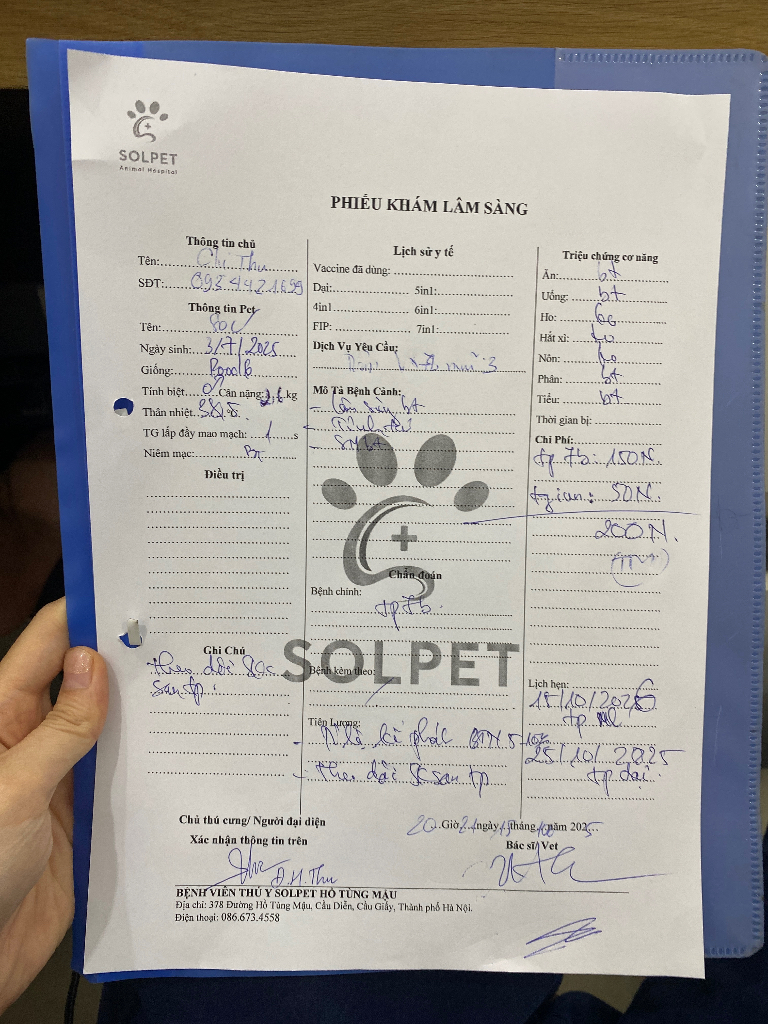 SOLPET
Animal Hospital
PHIẾU KHÁM LÂM SÀNG
Thông tin chủ
Tên: Chị Thu
SĐT: 0934421699
Thông tin Pet
Tên:
Ngày sinh: 3/7/2025
Giống: Poodle
Tính biệt ♂ Cân nặng: kg
Thân nhiệt: 38,5
TG lấp đầy mao mạch: 1 s
Niêm mạc: BT
Điều trị
Ghi Chú
theo dõi SK
sau tp.
Lịch sử y tế
Vaccine đã dùng:
Dại: 5in1:
4in1 6in1:
FIP: 7in1:
Dịch Vụ Yêu Cầu:
mũi 3
Mô Tả Bệnh Cảnh:
- bt
- Tỉnh táo
- bt
Chẩn đoán
Bệnh chính:
tp 7b.
SOLPET
Bệnh kèm theo:
Tiên Lượng:
- Tỉ lệ tái phát 5-10%
- theo dõi SK sau tp
Triệu chứng cơ năng
Ăn: bt
Uống: bt
Ho: ko
Hắt xì: ko
Nôn: ko
Phân: bt
Tiểu: bt
Thời gian bị:
Chi Phí:
tp 7b: 150N.
50N.
200N.
Lịch hẹn:
15/10/2026
tp
25/10/2025
tp dại.
Chủ thú cưng/ Người đại diện
Xác nhận thông tin trên
Đ.H.Thu
20 Giờ 21 ngày 15 tháng 10 năm 2025
Bác sĩ/ Vet
BỆNH VIỆN THÚ Y SOLPET HỒ TÙNG MẬU
Địa chỉ: 378 Đường Hồ Tùng Mậu, Cầu Diễn, Cầu Giấy, Thành phố Hà Nội.
Điện thoại: 086.673.4558